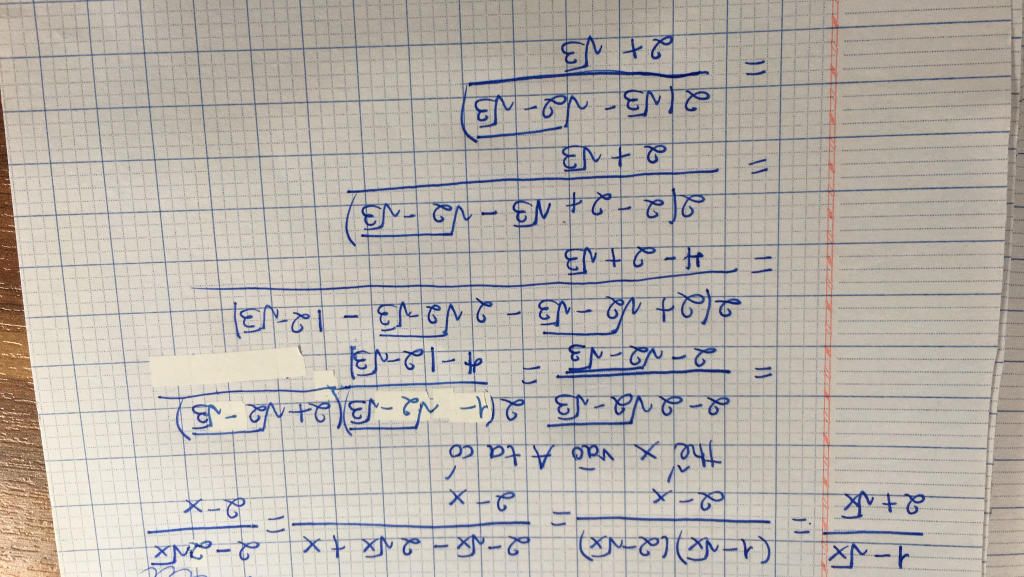 1-√x / 2+√x = (1-√x)(2-√x) / 2-x = 2-√x-2√x+x / 2-x = 2-2√x / 2-x
thế x vào A ta có
= 2-2√(2-√3) / 2-√(2-√3) = 2(1-√(2-√3))(2+√(2-√3)) / 4-|2-√3|
= 2(2+√(2-√3) - 2√(2√3) - |2-√3| / 4-2+√3
= 2(2-2+√3-√(2-√3)) / 2+√3
= 2(√3-√(2-√3)) / 2+√3